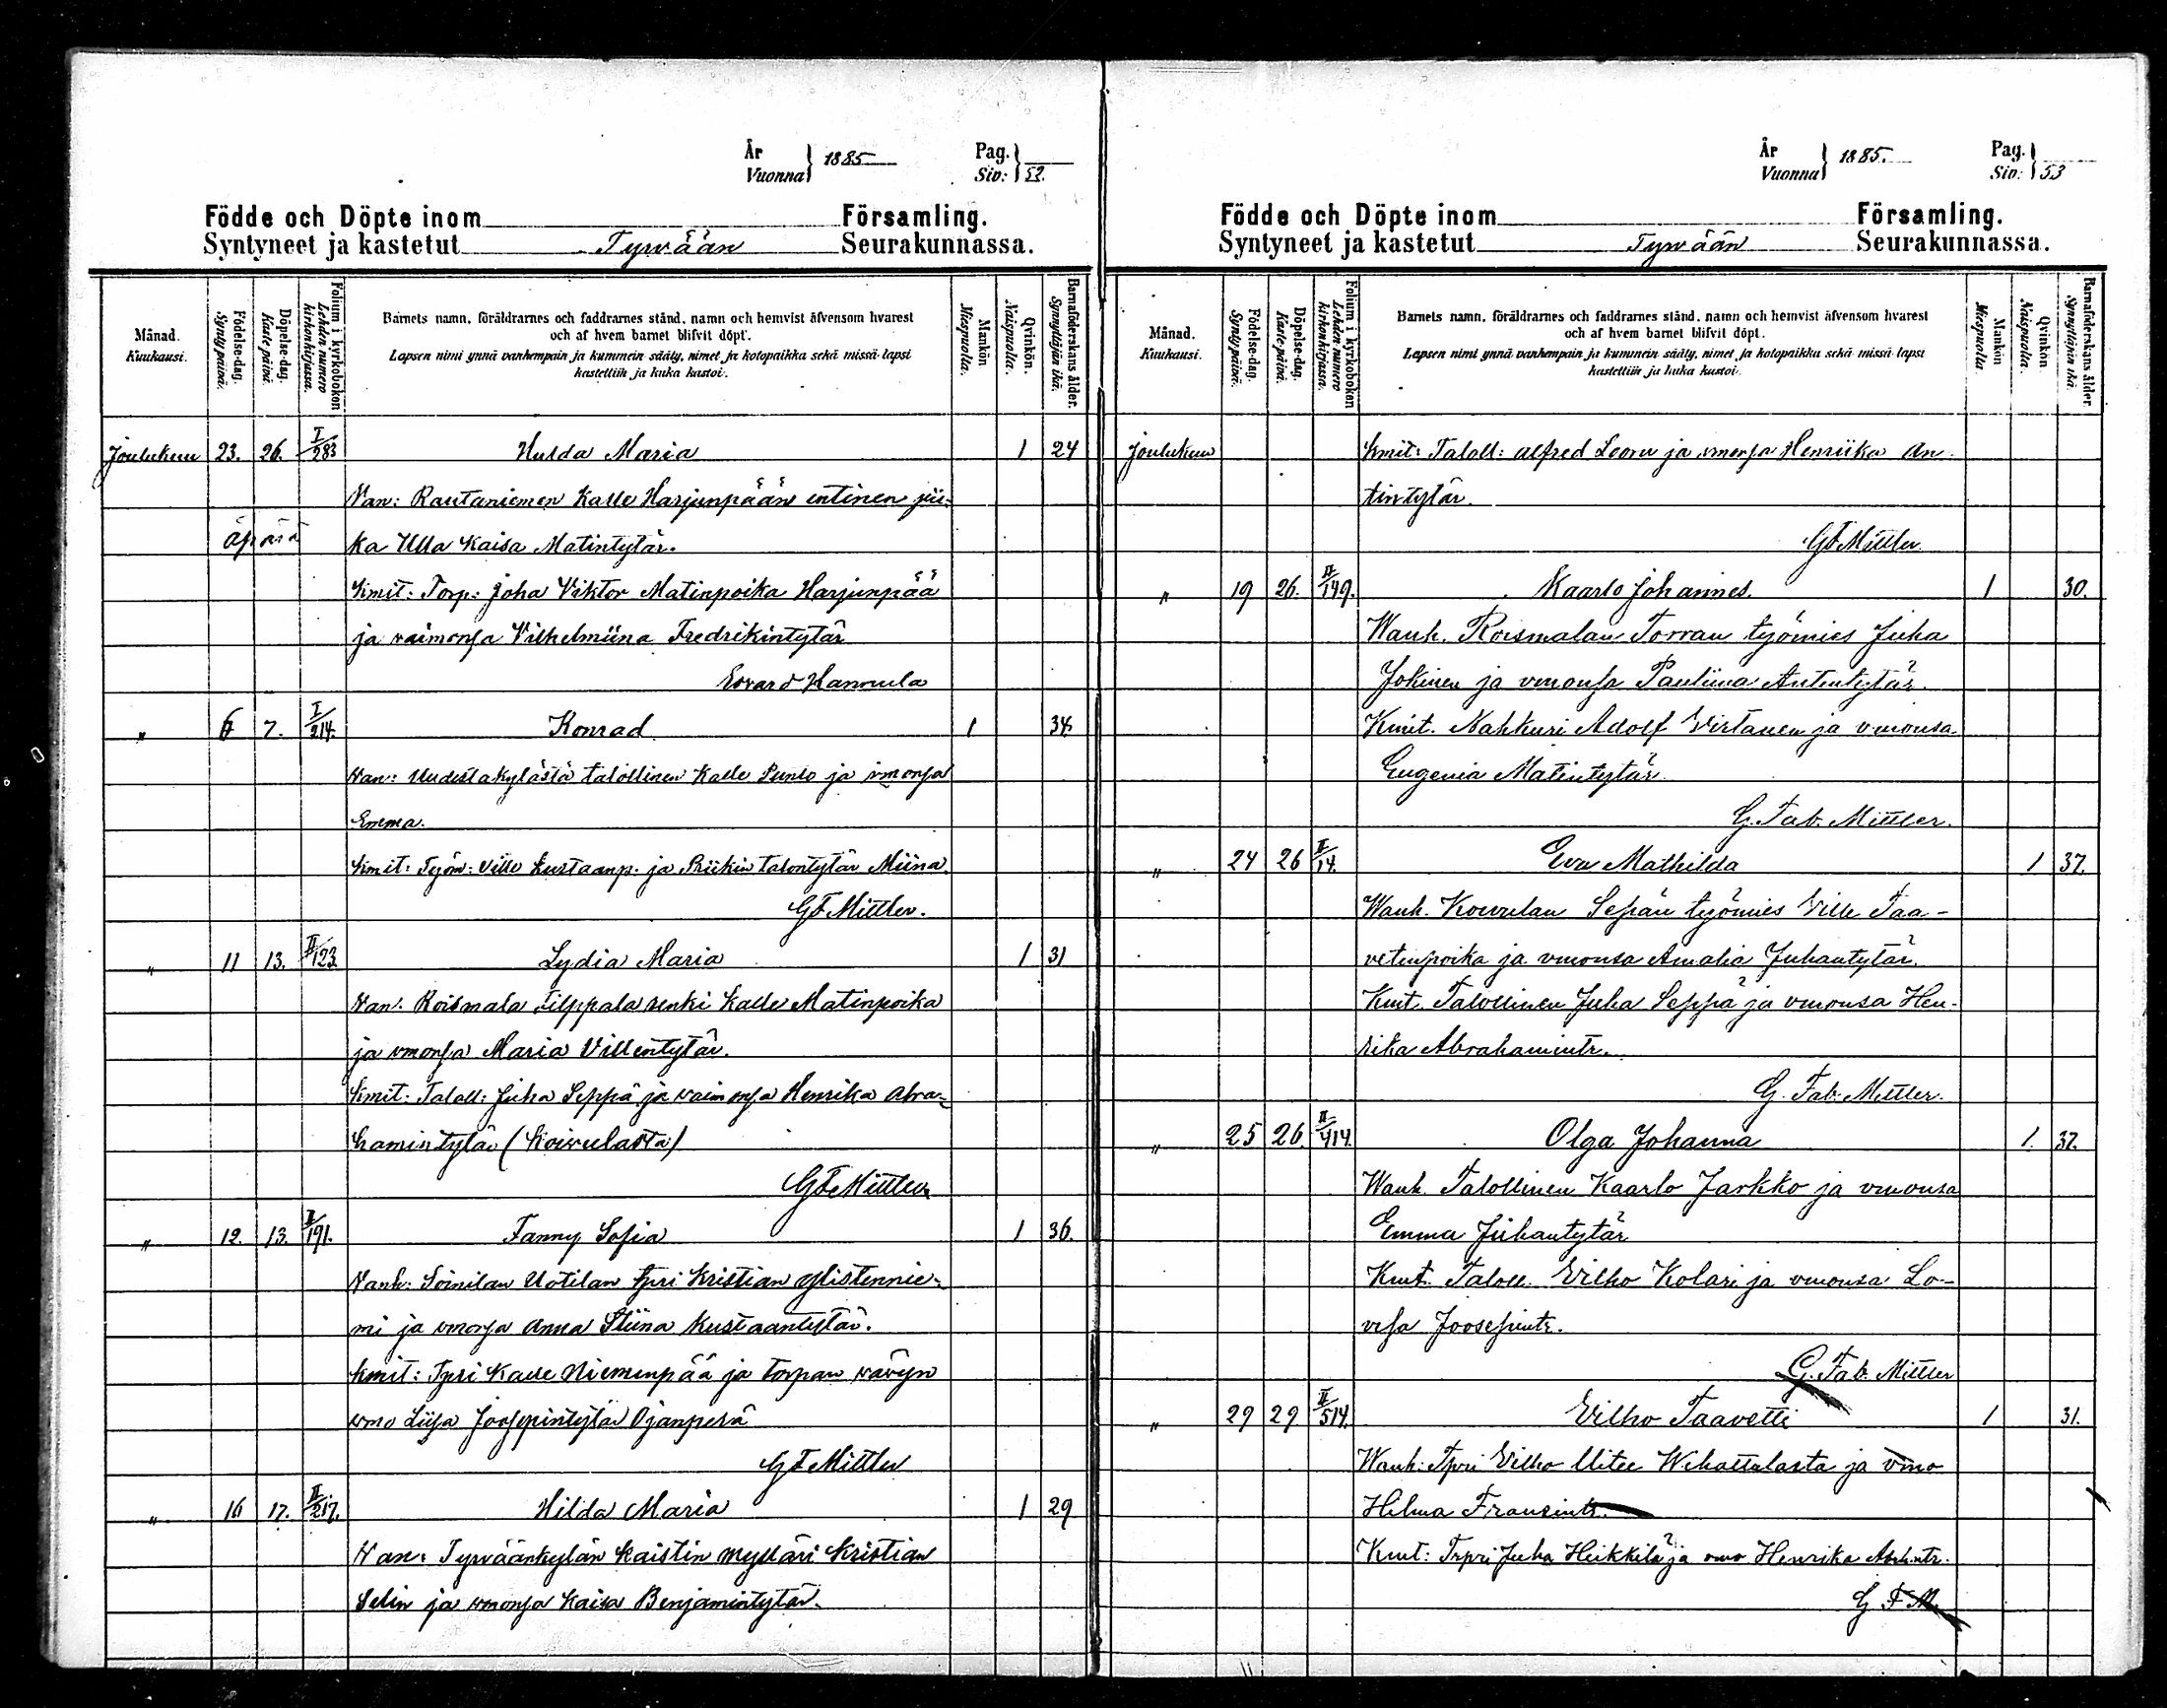 År
Vuonna } 1885
Pag.
Siv: } 52.
Födde och Döpte inom Församling.
Syntyneet ja kastetut Tyrvään Seurakunnassa.
Månad.
Kuukausi.
Födelse-dag.
Synty päivä.
Döpelse-dag.
Kaste päivä.
Folium i kyrkoboken
Lehden numero
kirkonkirjassa.
Barnets namn, föräldrarnes och faddrarnes stånd, namn och hemvist äfvensom hvarest
och af hvem barnet blifvit döpt.
Lapsen nimi ynnä vanhempain ja kummein sääty, nimet ja kotopaikka sekä missä lapsi
kastettiin ja kuka kastoi.
Mankön
Miespuolta.
Qvinkön.
Naispuolta.
Barnaföderskans ålder.
Synnyttäjän ikä.
Joulukuu 23. 26. I/283 Hulda Maria 1 24
Van: Rautaniemen Kalle Harjunpään entinen pii-
äpärä ka Ulla Kaisa Matintytär.
Kmit: Torp: Joha Viktor Matinpoika Harjunpää
ja vaimonsa Vilhelmiina Fredrikintytär
Edvard Hannula
" 6 7. I/214. Konrad 1 34
Van: Uudestakylästä talollinen Kalle Punto ja vmonsa
Emma.
Kmit: Työm: Ville Kustaanp. ja Priikin talontytär Miina.
GF Mittler.
" 11 13. II/123 Lydia Maria 1 31
Van: Roismala Filppala renki Kalle Matinpoika
ja vmonsa Maria Villentytär.
Kmit: Taloll: Juha Seppä ja vaimonsa Henrika Abra-
hamintytär (Koivulasta)
GF Mittler
" 12. 13. I/191. Fanny Sofia 1 36.
Vanh: Soinilan Uotilan tpri Kristian Ylistennie-
mi ja vmonsa Anna Stiina Kustaantytär.
Kmit: Tpri Kalle Niemenpää ja torpan vävyn
vmo Liisa Joosepintytär Ojanperä
GF Mittler
" 16 17. II/217. Hilda Maria 1 29
Van: Tyrväänkylän Kaistin mylläri Kristian
Selin ja vmonsa Kaisa Benjamintytär.
År
Vuonna } 1885.
Pag.
Siv: } 53
Födde och Döpte inom Församling.
Syntyneet ja kastetut Tyrvään Seurakunnassa.
Månad.
Kuukausi.
Födelse-dag.
Synty päivä.
Döpelse-dag.
Kaste päivä.
Folium i kyrkoboken
Lehden numero
kirkonkirjassa.
Barnets namn, föräldrarnes och faddrarnes stånd, namn och hemvist äfvensom hvarest
och af hvem barnet blifvit döpt.
Lapsen nimi ynnä vanhempain ja kummein sääty, nimet ja kotopaikka sekä missä lapsi
kastettiin ja kuka kastoi.
Mankön
Miespuolta.
Qvinkön
Naispuolta.
Barnaföderskans ålder.
Synnyttäjän ikä.
Joulukuu Kmit: Taloll: Alfred ja vmonsa Henriika An-
tintytär.
GF Mittler
" 19 26. II/149. Kaarlo Johannes. 1 30.
Wanh. Roismalan Torran työmies Juha
Jokinen ja vmonsa Pauliina Antintytär.
Kmit. Nahkuri Adolf Virtanen ja vmonsa
Eugenia Matintytär
G. Fab. Mittler.
" 24 26 II/14. Eva Mathilda 1 37.
Wanh. Koivulan Sepän työmies Ville Taa-
vetinpoika ja vmonsa Amalia Juhantytär.
Kmt. Talollinen Juha Seppä ja vmonsa Hen-
rika Abrahamintr.
G. Fab. Mittler.
" 25 26. II/414. Olga Johanna 1. 32.
Wanh. Talollinen Kaarlo Jarkko ja vmonsa
Emma Juhantytär
Kmt. Taloll. Vilho Kolari ja vmonsa Lo-
visa Joosepintr.
G. Fab. Mittler
" 29 29 II/514. Vilho Taavetti 1 31.
Wanh: Tpri Vilho Uitee Wihattulasta ja vmo
Helma Fransintr.
Kmt: Trpri Juha Heikkilä ja vmo Henrika
G F M.